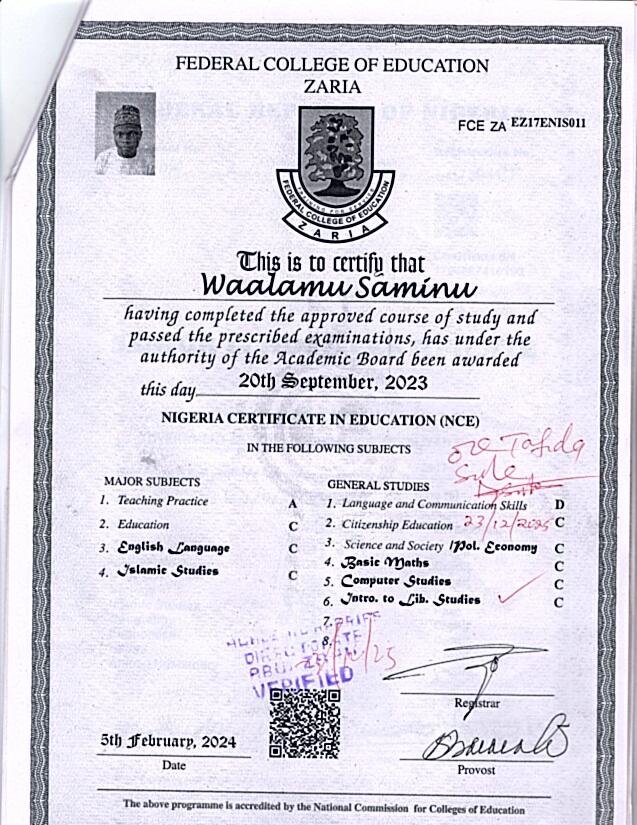 FEDERAL COLLEGE OF EDUCATION
ZARIA
FCE ZA EZ17ENIS011
TRAINING FOR SERVICE
FEDERAL COLLEGE OF EDUCATION
ZARIA
This is to certify that
Waalamu Saminu
having completed the approved course of study and
passed the prescribed examinations, has under the
authority of the Academic Board been awarded
this day 20th September, 2023
NIGERIA CERTIFICATE IN EDUCATION (NCE)
IN THE FOLLOWING SUBJECTS
MAJOR SUBJECTS
1. Teaching Practice A
2. Education C
3. English Language C
4. Islamic Studies C
GENERAL STUDIES
1. Language and Communication Skills D
2. Citizenship Education C
23/12/2025
3. Science and Society /Pol. Economy C
4. Basic Maths C
5. Computer Studies C
6. Intro. to Lib. Studies C
7.
8.
VERIFIED
Registrar
5th February, 2024
Date
Provost
The above programme is accredited by the National Commission for Colleges of Education